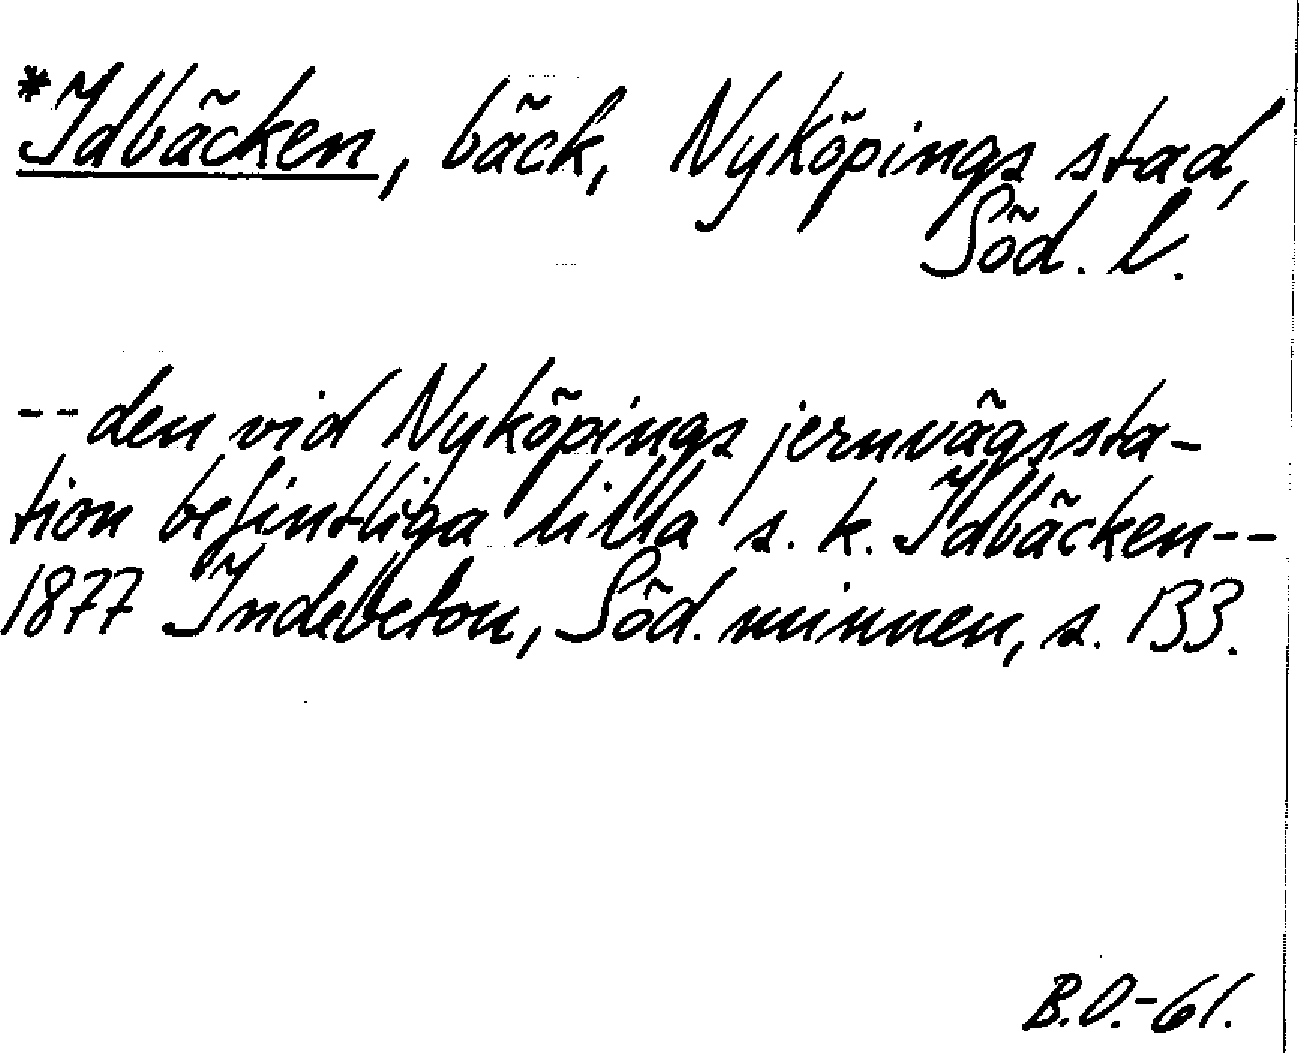 *Idbäcken, bäck, Nyköpings stad,
Söd. l.
--den vid Nyköpings jernvägssta-
tion befintliga lilla s. k. Idbäcken--
1877 Indebetou, Söd. minnen, s. 133.
B.O.-61.